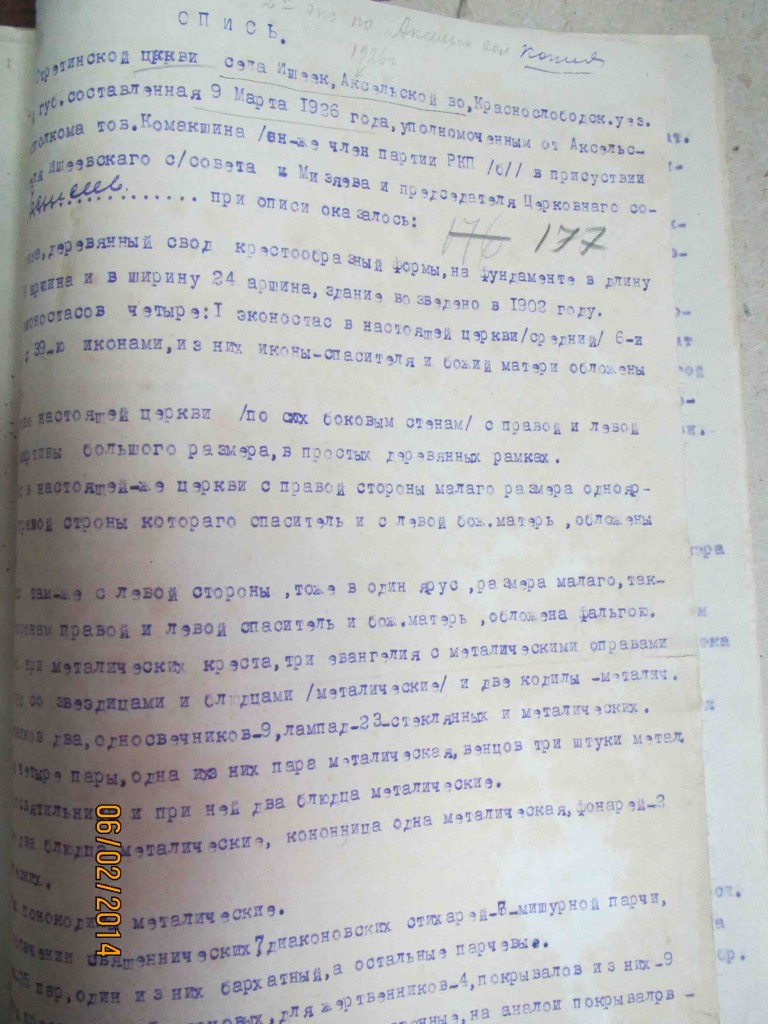 2й экз по Аксельск вол копия
1926г
ОПИСЬ.
Сретинской церкви села Ишеек, Аксельской во, Краснослободск. уез.
губ. составленная 9 Марта 1926 года, уполномоченным от Аксельс-
полкома тов. Комакшина /он-же член партии РКП /б// в присуствии
Ишеевскаго с/совета и Мизяева и председателя Церковнаго со-
............... при описи оказалось:
176 177
деревянный свод крестообразный формы, на фундаменте в длину
аршина и в ширину 24 аршина, здание возведено в 1902 году.
оностасов четыре: I эконостас в настоящей церкви /средний/ 6-и
с 39-ю иконами, из них иконы-спасителя и божий матери обложены
настоящей церкви /по сих боковым стенам/ с правой и левой
артины большого размера, в простых деревянных рамках.
с в настоящей-же церкви с правой стороны малаго размера однояр-
правой строны котораго спаситель и с левой бож. матерь , обложены
с там-же с левой стороны , тоже в один ярус , размера малаго, так-
оронам правой и левой спаситель и бож. матерь , обложена фальгою.
три металических креста, три евангелия с металическими оправами
со звездицами и блюдцами /металические/ и две кодилы -металич.
два, односвечников-9, лампад-23-стеклянных и металических.
четыре пары, одна из них пара металическая, венцов три штуки метал.
освятильник и при ней два блюдца металические.
два блюдца металические, кононница одна металическая, фонарей-2
еских.
металические.
священнических 7, диаконовских стихарей-3-мишурной парчи,
пар, один из них бархатный, а остальные парчевые.
для жертвенников-4, покрывалов из них-9
на аналои покрывалов -
06/02/2014